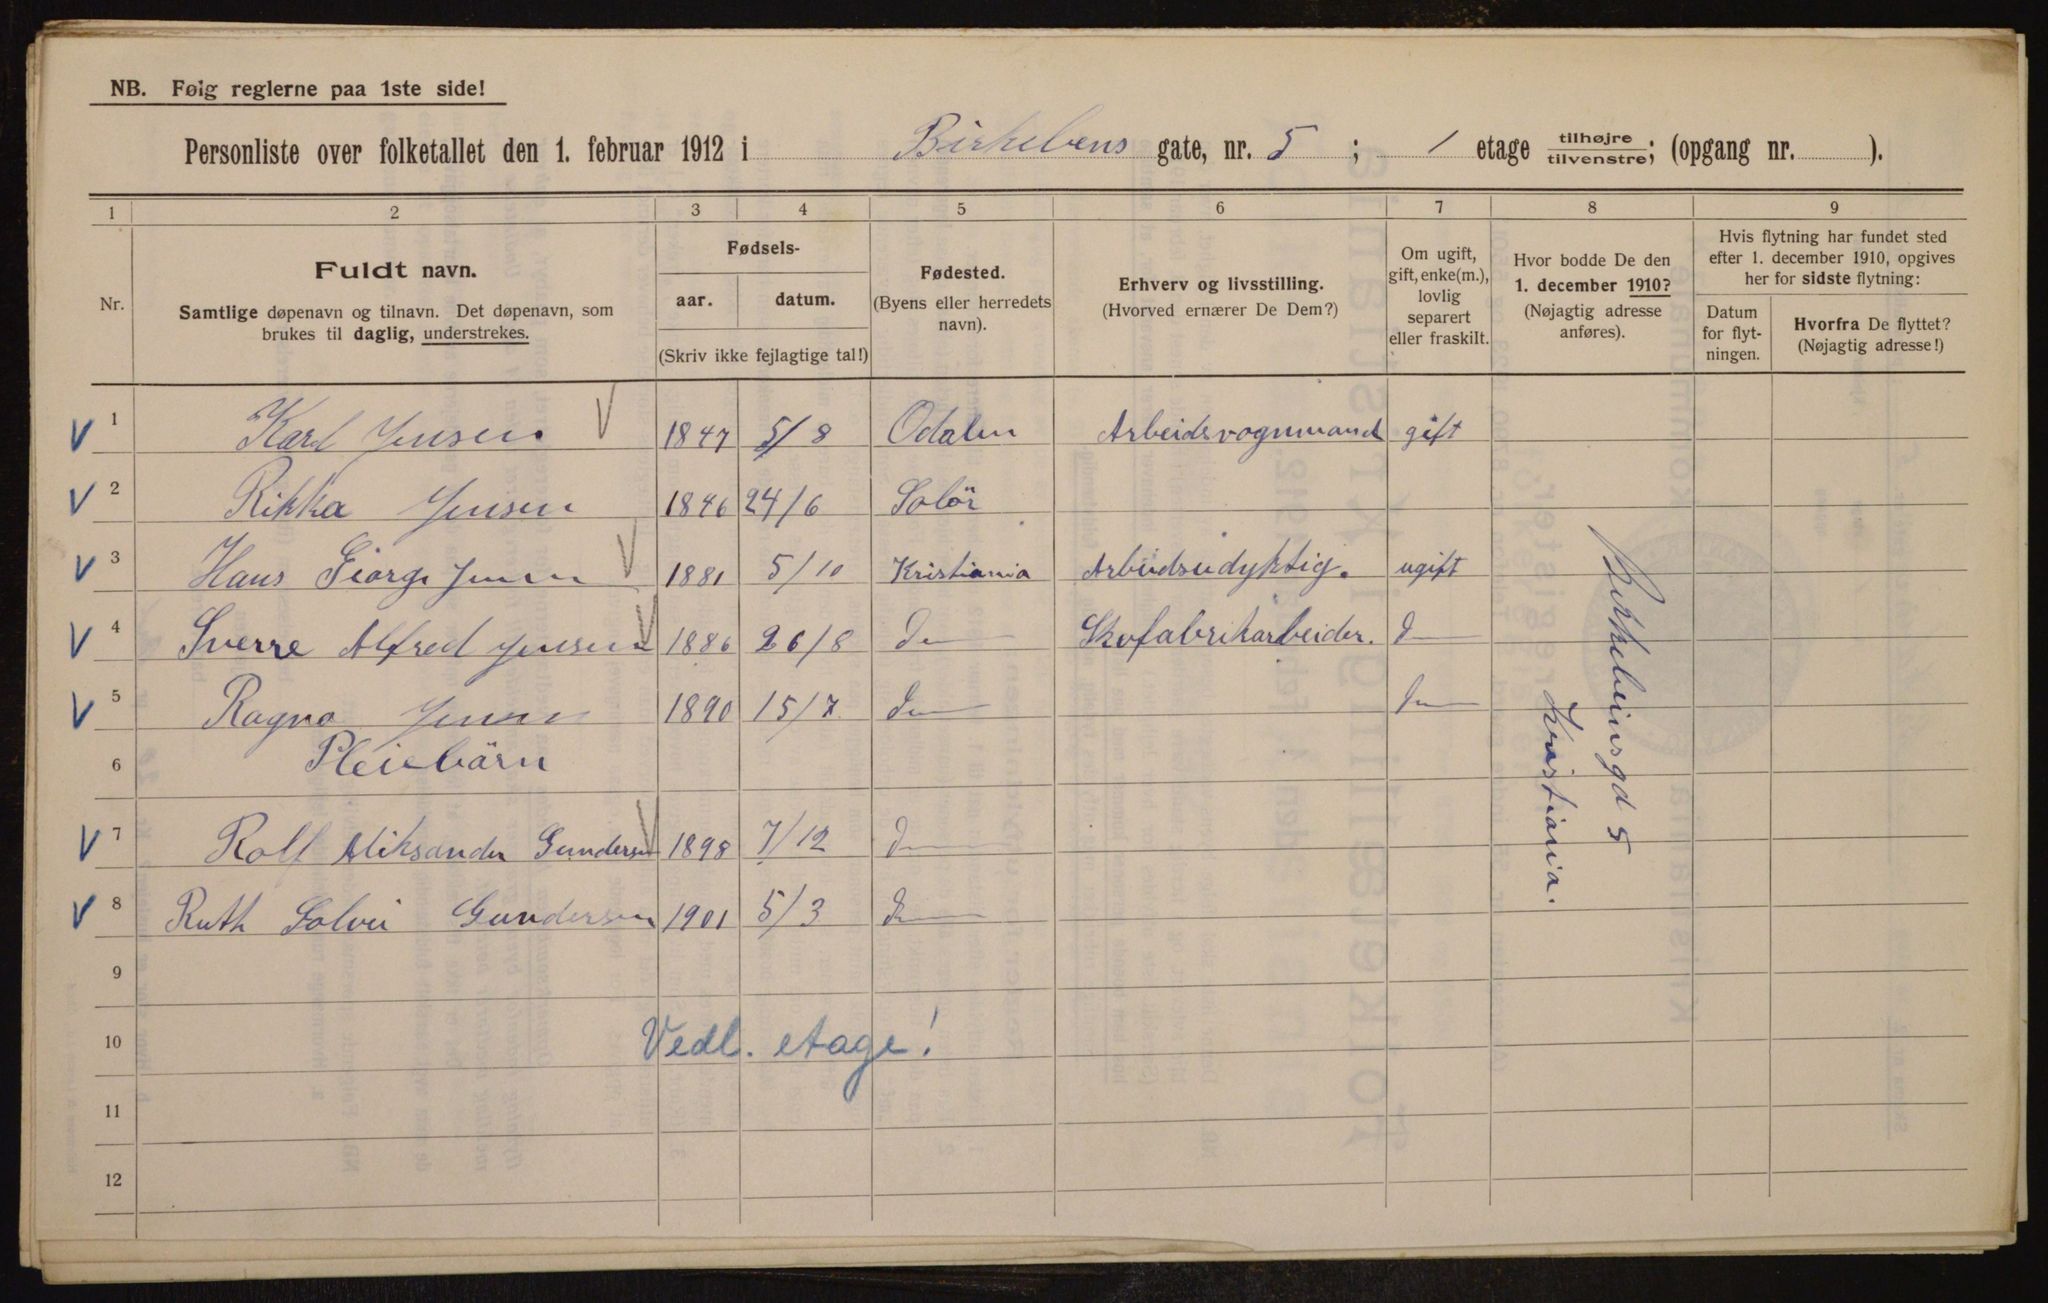 NB. Følg reglerne paa 1ste side!
Personliste over folketallet den 1. februar 1912 i Birkebens gate, nr. 5 ; 1 etage tilhøjre tilvenstre; (opgang nr. ).
1 2 3 4 5 6 7 8 9
Nr.
Fuldt navn.
Samtlige døpenavn og tilnavn. Det døpenavn, som
brukes til daglig, understrekes.
Fødsels-
aar. datum.
(Skriv ikke fejlagtige tal!)
Fødested.
(Byens eller herredets
navn).
Erhverv og livsstilling.
(Hvorved ernærer De Dem?)
Om ugift,
gift, enke(m.),
lovlig
separert
eller fraskilt.
Hvor bodde De den
1. december 1910?
(Nøjagtig adresse
anføres).
Hvis flytning har fundet sted
efter 1. december 1910, opgives
her for sidste flytning:
Datum
for flyt-
ningen.
Hvorfra De flyttet?
(Nøjagtig adresse!)
V 1 Karl Jensen V 1847 5/8 Odalen Arbeidsvognmand gift
V 2 Rikka Jensen 1846 24/6 Solör
V 3 Hans Georg Jensen V 1881 5/10 Kristiania Arbeidsudyktig. ugift
V 4 Sverre Alfred Jensen V 1886 26/8 do Skofabrikarbeider. do
V 5 Ragna Jensen 1890 15/7 do do
6 Pleiebörn
V 7 Rolf Aleksander Gundersen V 1898 7/12 do
V 8 Ruth Solvei Gundersen 1901 5/3 do
Birkebeinsgd 5
Kristiania.
9
10 Vedl. etage!
11
12